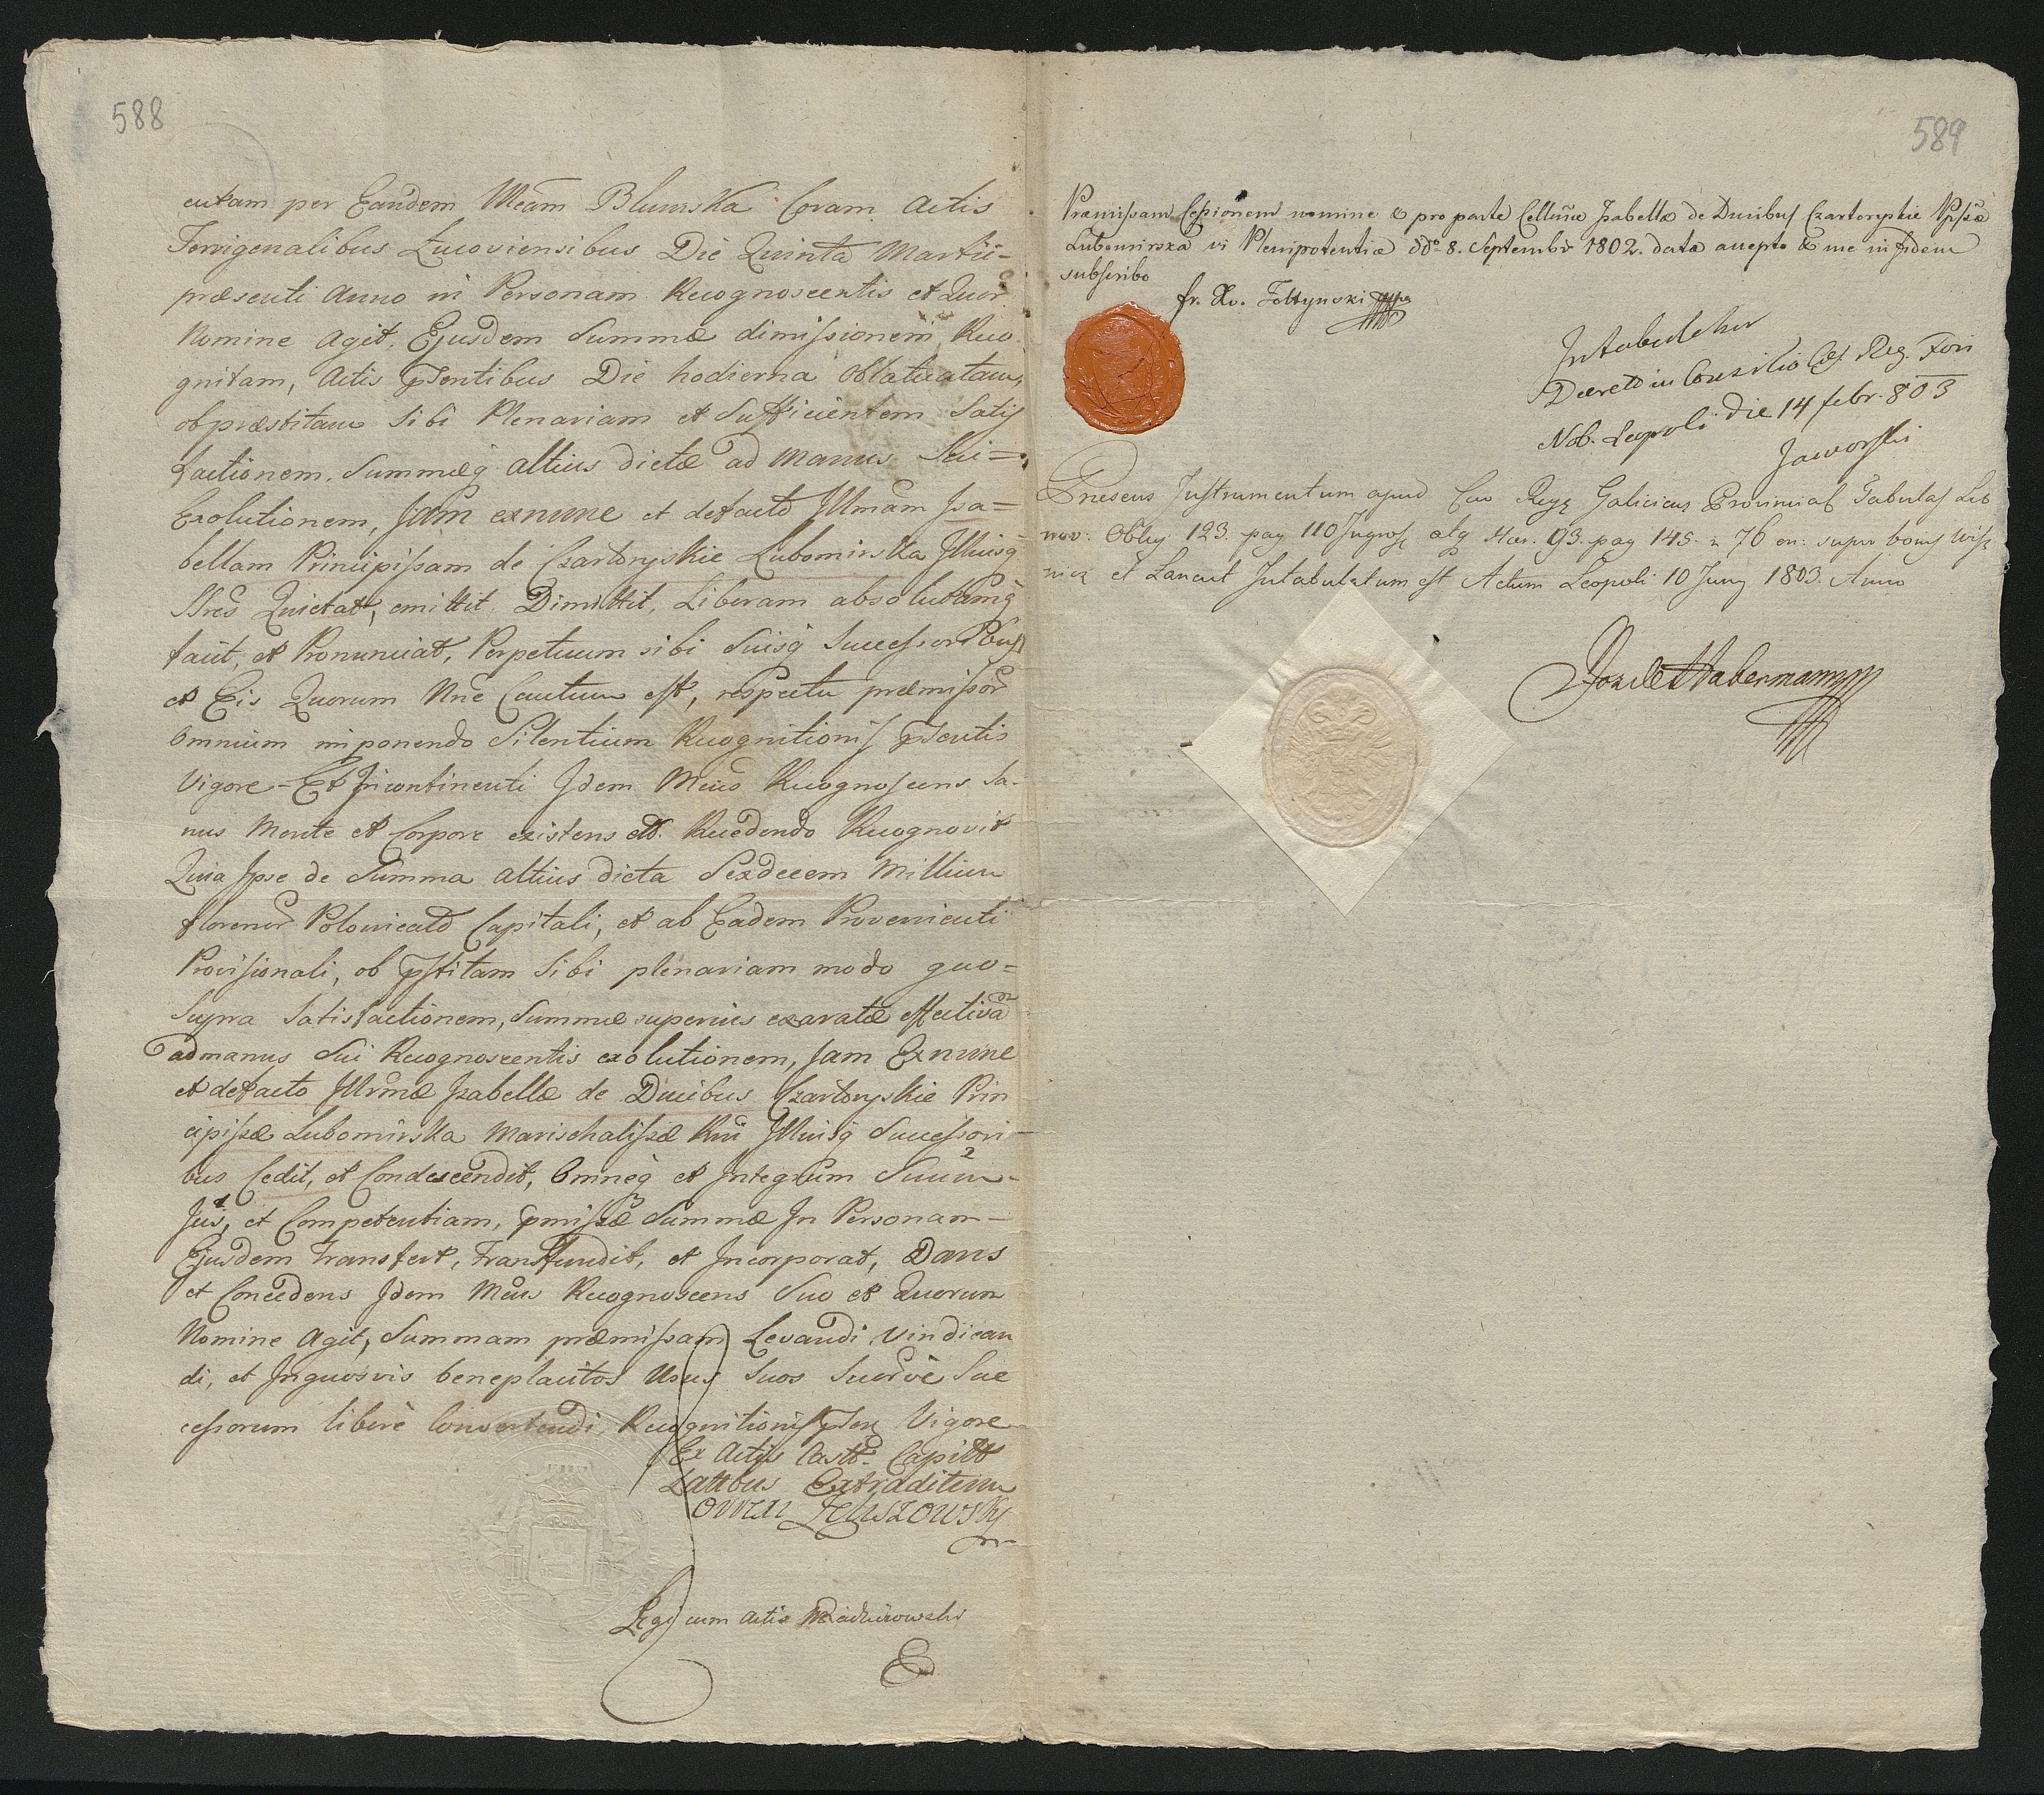 588
cutam per Eandem Mcam Blumska Coram Actis
Terrigenalibus Lucoviensibus Die Quinta Martii-
præsenti Anno in Personam Recognoscentis et Quor
Nomine Agit, Ejusdem Summæ dimissionem, Reco
gnitam, Actis psentibus Die hodierna Oblaticatam,
ob præstitam sibi Plenariam et Sufficientem Satis
factionem, Summæq altius dictæ ad manus Sui=
Exolutionem, Jam exnunc et defacto Illmam Isa=
bellam Principissam de Czartoryskie Lubomirska Illiusq
SSres Quietat, emittit, Dimittit, Liberam absolutamq
facit, et Pronunciat, Perpetuum sibi Suisq Successoribus
et Eis Quorum Nne Cautum est, respectu præmissor
Omnium imponendo Silentium Recognitionis psentis
Vigore - Et Incontinenti Idem Mcus Recognoscens Sa-
nus Mente et Corpore existens ett. Recedendo Recognovit
Quia Ipse de Summa altius dicta Sexdecem Millium
florenor Polonicald Capitali, et ab Eadem Provenienti
Provisionali, ob pstitam Sibi plenariam modo quo=
Supra Satisfactionem, Summæ superius exaratæ effectivã
ad manus Sui Recognoscentis exolutionem, Jam Exnunc
et defacto Illrmæ Isabellæ de Ducibus Czartoryskie Prin
cipissæ Lubomirska Marischalissæ Rni Illiusq Successori
bus Cedit, et Condescendit, Omneq et Integrum Suum-
Jus, et Competentiam, pmissæ Summæ In Personam-
Ejusdem Transfert, Transfundit, et Incorporat, Dans
et Concedens Idem Mcus Recognoscens Suo et Quorum
Nomine Agit, Summam præmissam Levandi Vindican
di, et Inquosvis beneplacitos Usus Suos Suorve Suc
cessorum libere Convertendi, Recognitionis psen Vigore
Ex Actis Castr. Capitt
Lattbus Extraditum
Legi cum Actis
589
Præmissam Cessionem nomine & pro parte Cellmæ Isabellæ de Ducibus Czartoryskie Ppssæ
Lubomirska vi Plenipotentiæ ddo 8. Septembr 1802. datæ accepto & me in fidem
subscribo
fr. Xv. Foltynski
Intabuletur
Decreto in Consilio Cæs. Reg. Fori
Nob. Leopoli die 14 febr. 803
Jaworski
Præsens Instrumentum apud Cæs Regs Galiciens Provincial Tabulas Lib
nov: Oblig 123. pag 110 Ingross atq Har. 93. pag 145. n 76 on: super bonis Wiss
nicz et Lancut Intabulatum est Actum Leopoli 10 Juny 1803. Anno
Habermann